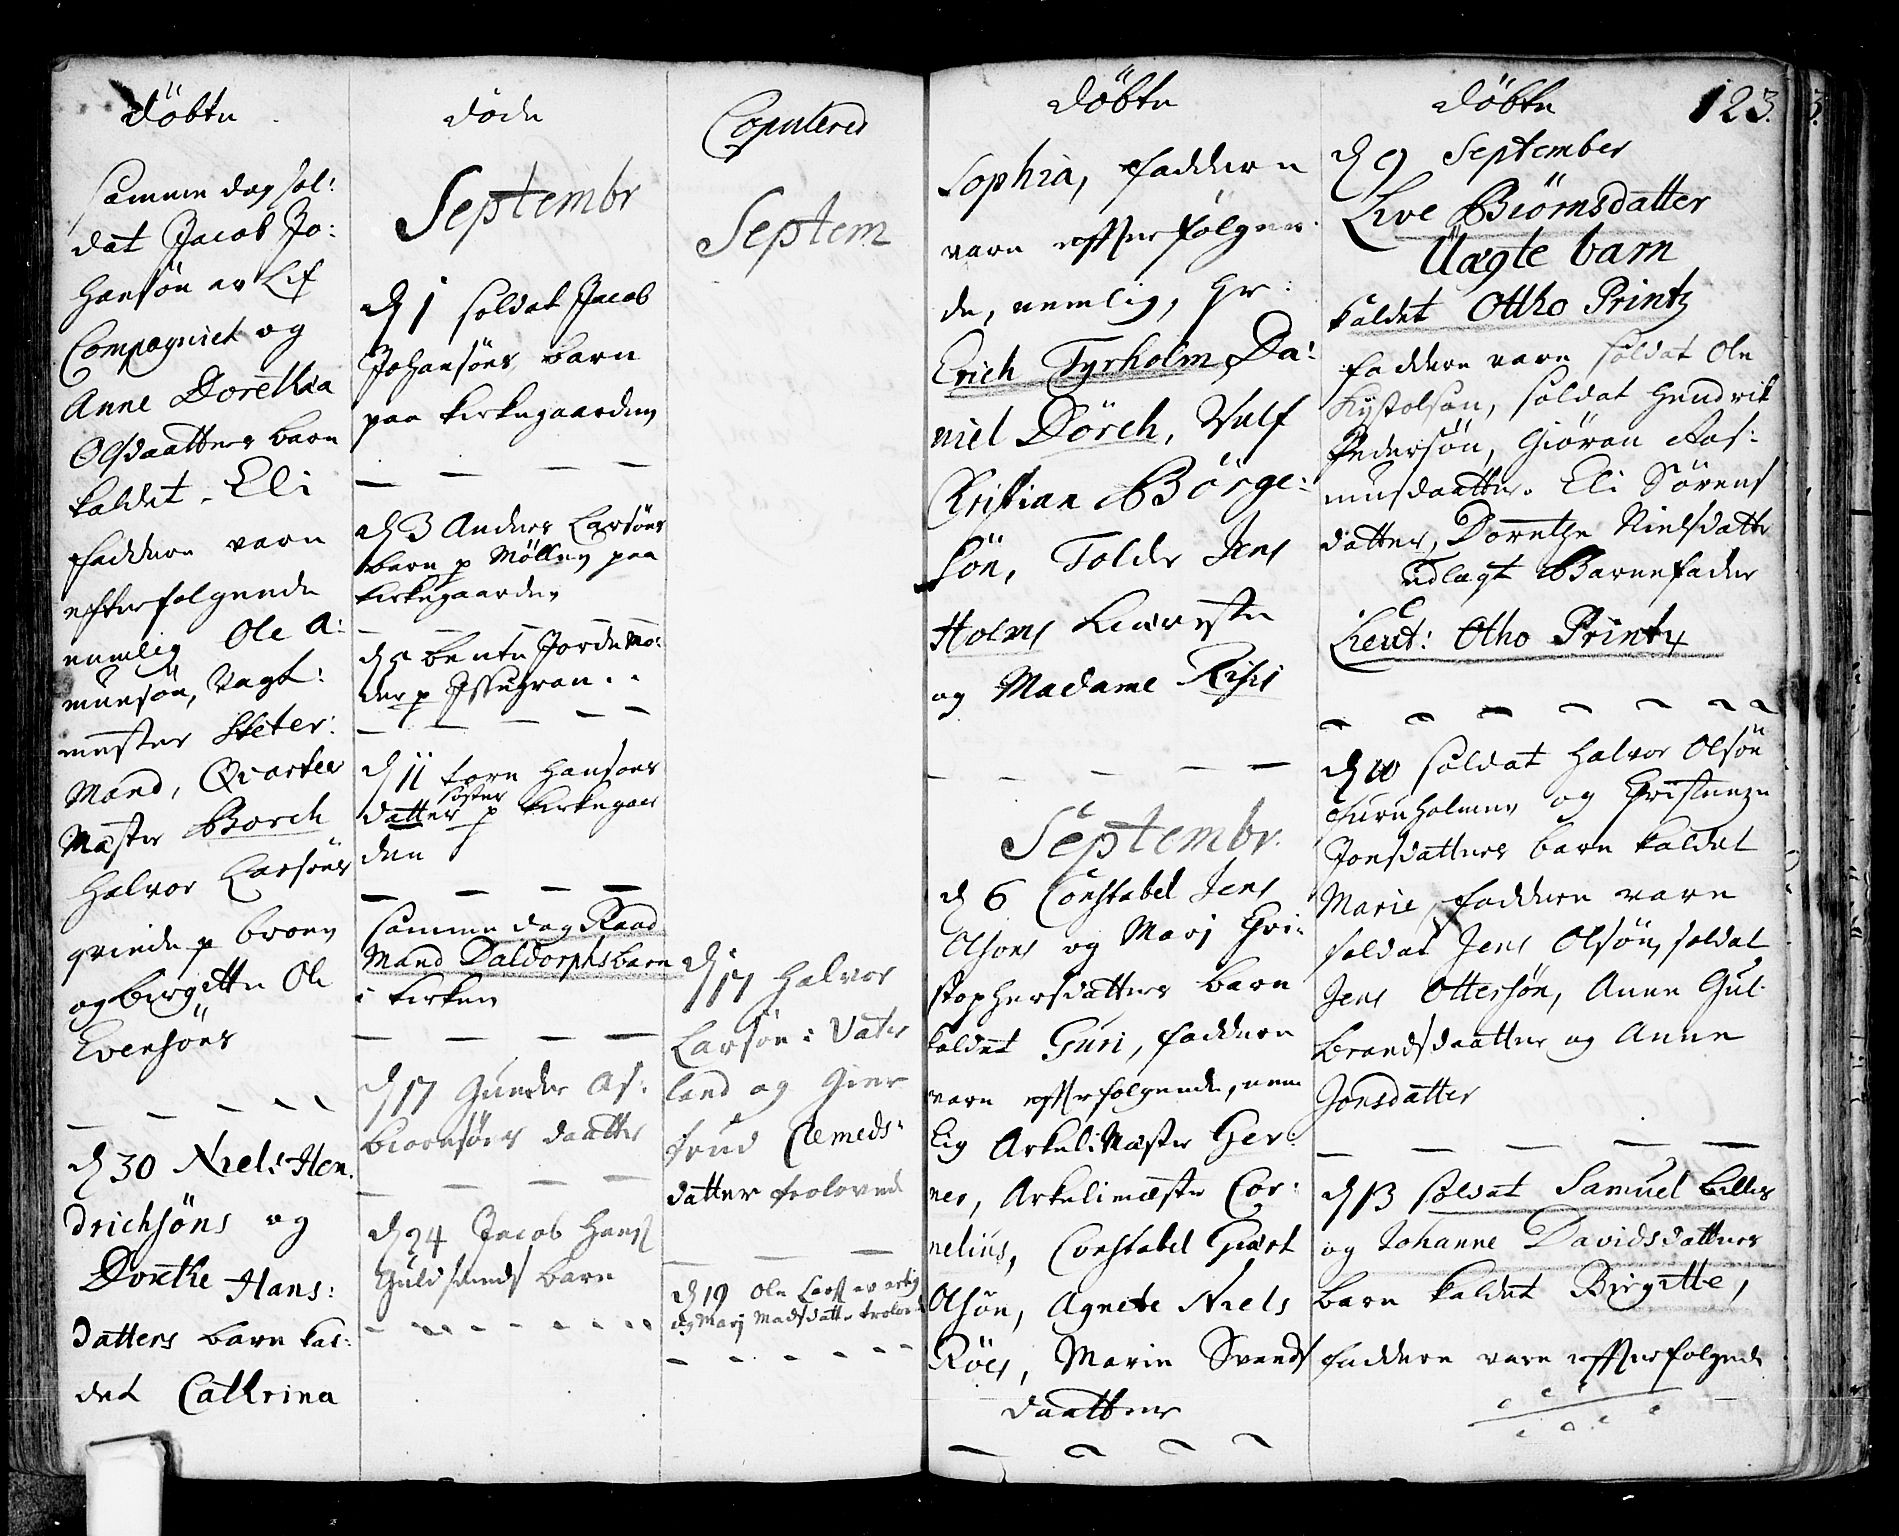 Döbte
Samme dag sol:
dat Jacob Jo:
hansön av Lif
Compagniet og
Anne Dorethia
Olsdaatters barn
kaldet. Eli
faddere vare
efterfølgende
nemlig Ole A:
munsön, Vagt:
mester Sketer:
Mand, Qvarteer
Mæster Borch
Halvor Larsöns
qvinde p broen
og birgitte Ole
Evensöns
d 30 Niels Hen
drichsöns og
Dorethe Hans:
datters barn kal:
det Cathrina
døde
Septembr
d 1 soldat Jacob
Johansöns barn
paa kirkegaarden
d 3 Anders Larsöns
barn p Möllen paa
kirkegaarden
bente Jordemo:
der p
d 11 Hansöns
søster
datter p kirkegaar
den
Samme dag Raad
Mand Daldorphs barn
i kirken
d 17 Gunder As:
biornsöns daatter
d 24 Jacob Hans
Guldsmeds barn
Copulered
Septem
d 17 Halvor
Larsön i Vater
land og Gier
trud Clemeds:
datter trolovede
d 19 Ole
og Marj Madsdatter trolovede
Döbte
Sophia, faddere
vare efterfølgen
de, nemlig, Hr:
Erich Tyrholm, Da:
niel Dörch, Vulf
Christian Börge:
sön, Tolder Jens
Holms Kiæreste
og Madame Risis
Septembr.
d 6 Constabel Jens
Olsöns og Marj Chri:
stophersdatters barn
kaldet Guri, faddere
vare efterfølgende, nem
lig ArkeliMæster Ger:
ner, Arkelimæster Cor:
nelius, Constabel Giært
Olsön, Agnete Niels
Röes, Marie Svends
daatter
Döbte 123.
d 9 September
Live Biörnsdatter
Uægte barn
kaldet Ottho Printz
faddere vare soldat Ole
soldat Hendrik
Pedersön, Giöran Ras:
musdaatter. Eli Sörens
datter, Dorethe Nielsdatter
udlagt Barnefader
Lieut: Otho Printz
d 10 soldat Halvor Olsön
og Christense
Jonsdatters barn kaldet
Marie, faddere vare
soldat Jens Olsön, soldat
Jens Ottersön, Anne Gul
brandsdaatter og Anne
Jonsdatter
d 13 soldat Samuel billes
og Johanne Davidsdatters
barn kaldet Birgitte,
faddere vare efterfølgende